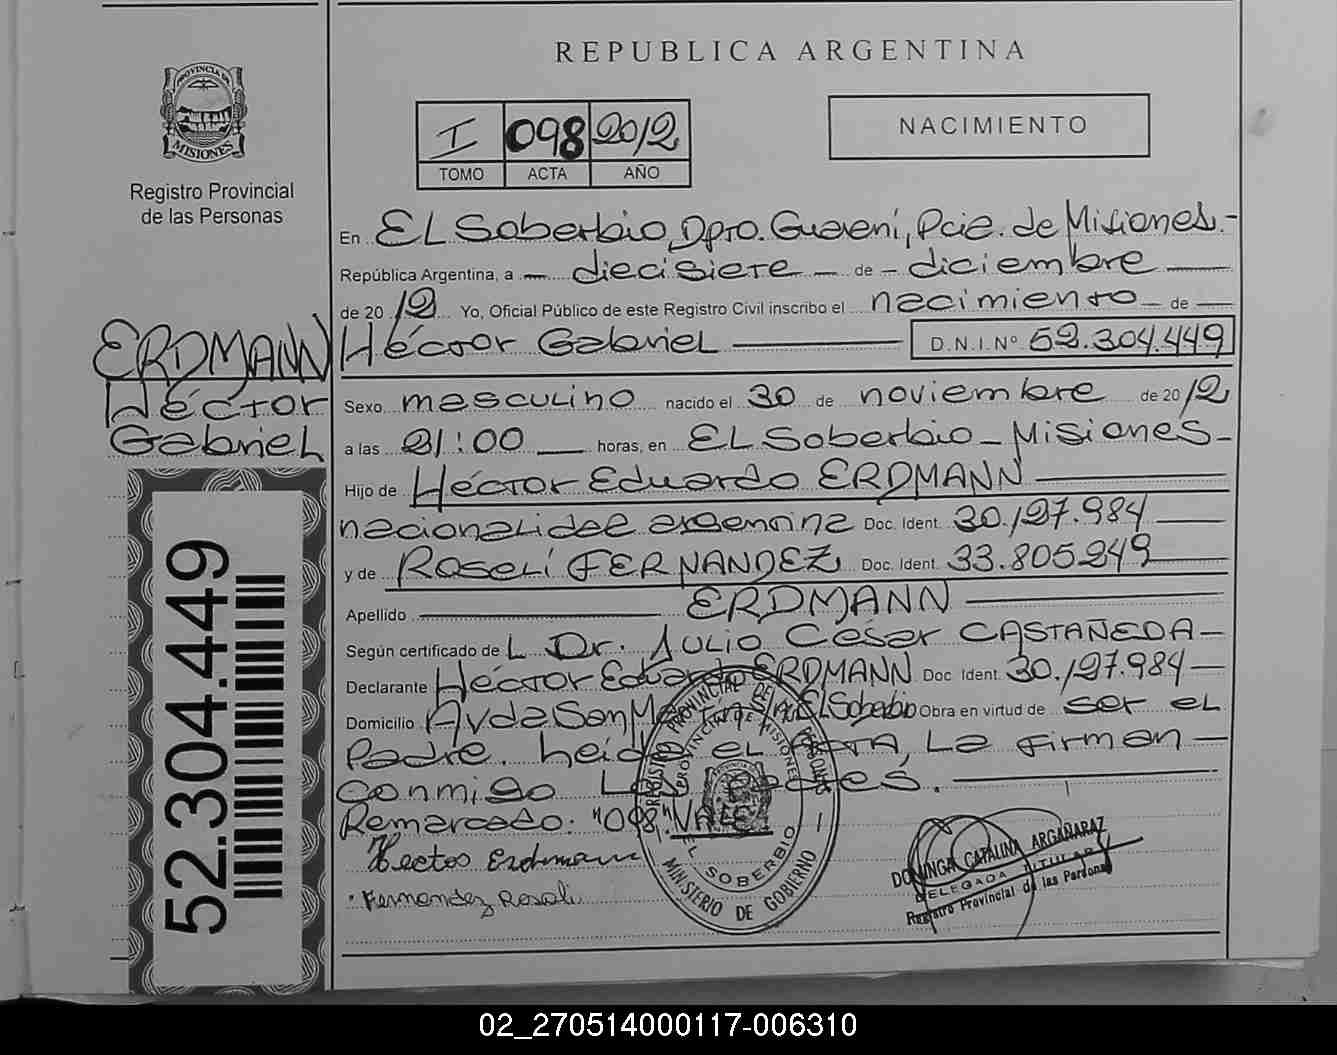 REPUBLICA ARGENTINA
PROVINCIA DE
MISIONES
Registro Provincial
de las Personas
I 098 2012
TOMO ACTA AÑO
NACIMIENTO
En EL Soberbio, Dpto. Guaraní, Pcia. de Misiones.-
República Argentina, a — diecisiete — de — diciembre —
de 2012 Yo, Oficial Público de este Registro Civil inscribo el nacimiento — de —
Héctor Gabriel — D.N.I. Nº 52.304.449
ERDMANN
Héctor
Gabriel
Sexo masculino nacido el 30 de noviembre de 2012
a las 21:00 — horas, en EL Soberbio - Misiones-
Hijo de Héctor Eduardo ERDMANN —
nacionalidad argentina Doc. Ident. 30.127.984 —
y de Roselí FERNANDEZ Doc. Ident. 33.805.249 —
Apellido — ERDMANN —
Según certificado de L Dr. Julio César CASTAÑEDA-
Declarante Héctor Eduardo ERDMANN Doc. Ident. 30.127.984 —
Domicilio Avda San Martín EL Soberbio Obra en virtud de ser el
Padre. Leída el ACTA La firman —
conmigo Los Padres. —
Remarcado: "098". VALE. —
Hector Erdmann
Fernandez Roseli
REGISTRO PROVINCIAL DE LAS PERSONAS
PROVINCIA DE MISIONES
EL SOBERBIO
MINISTERIO DE GOBIERNO
DOMINGA CATALINA ARGAÑARAZ
DELEGADA TITULAR
Registro Provincial de las Personas
52.304.449
02_270514000117-006310